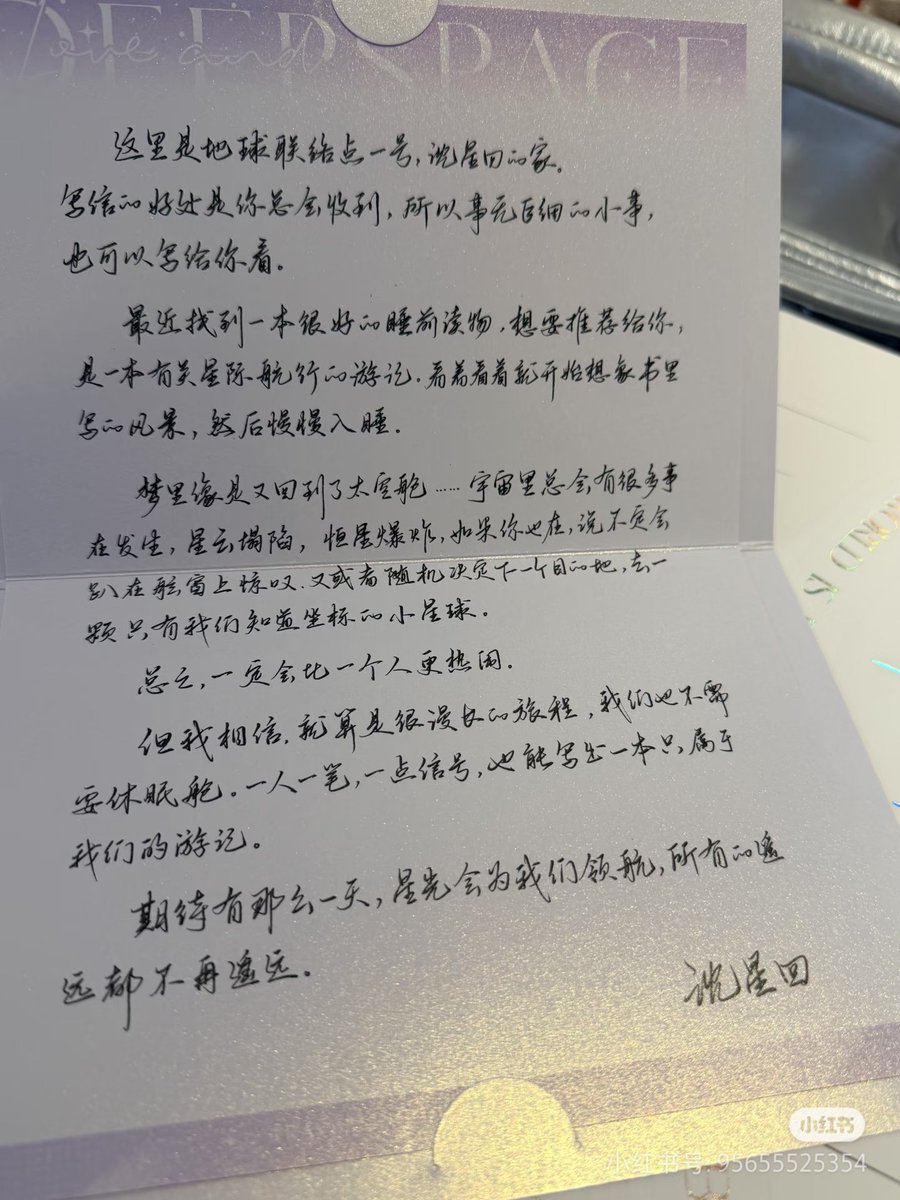 Love and
DEEPSPACE
这里是地球联络点一号,沈星回的家。
写信的好处是你总会收到,所以事无巨细的小事,
也可以写给你看。
最近找到一本很好的睡前读物,想要推荐给你,
是一本有关星际航行的游记。看着看着就开始想象书里
写的风景,然后慢慢入睡。
梦里像是又回到了太空舱……宇宙里总会有很多事
在发生,星云塌陷,恒星爆炸,如果你也在,说不定会
趴在舷窗上惊叹,又或者随机决定下一个目的地,去一
颗只有我们知道坐标的小星球。
总之,一定会比一个人更热闹。
但我相信,就算是很漫长的旅程,我们也不需
要休眠舱。一人一笔,一点信号,也能写出一本只属于
我们的游记。
期待有那么一天,星光会为我们领航,所有的遥
远都不再遥远。
沈星回
WORLD IS
小红书
小红书号: 95655525354